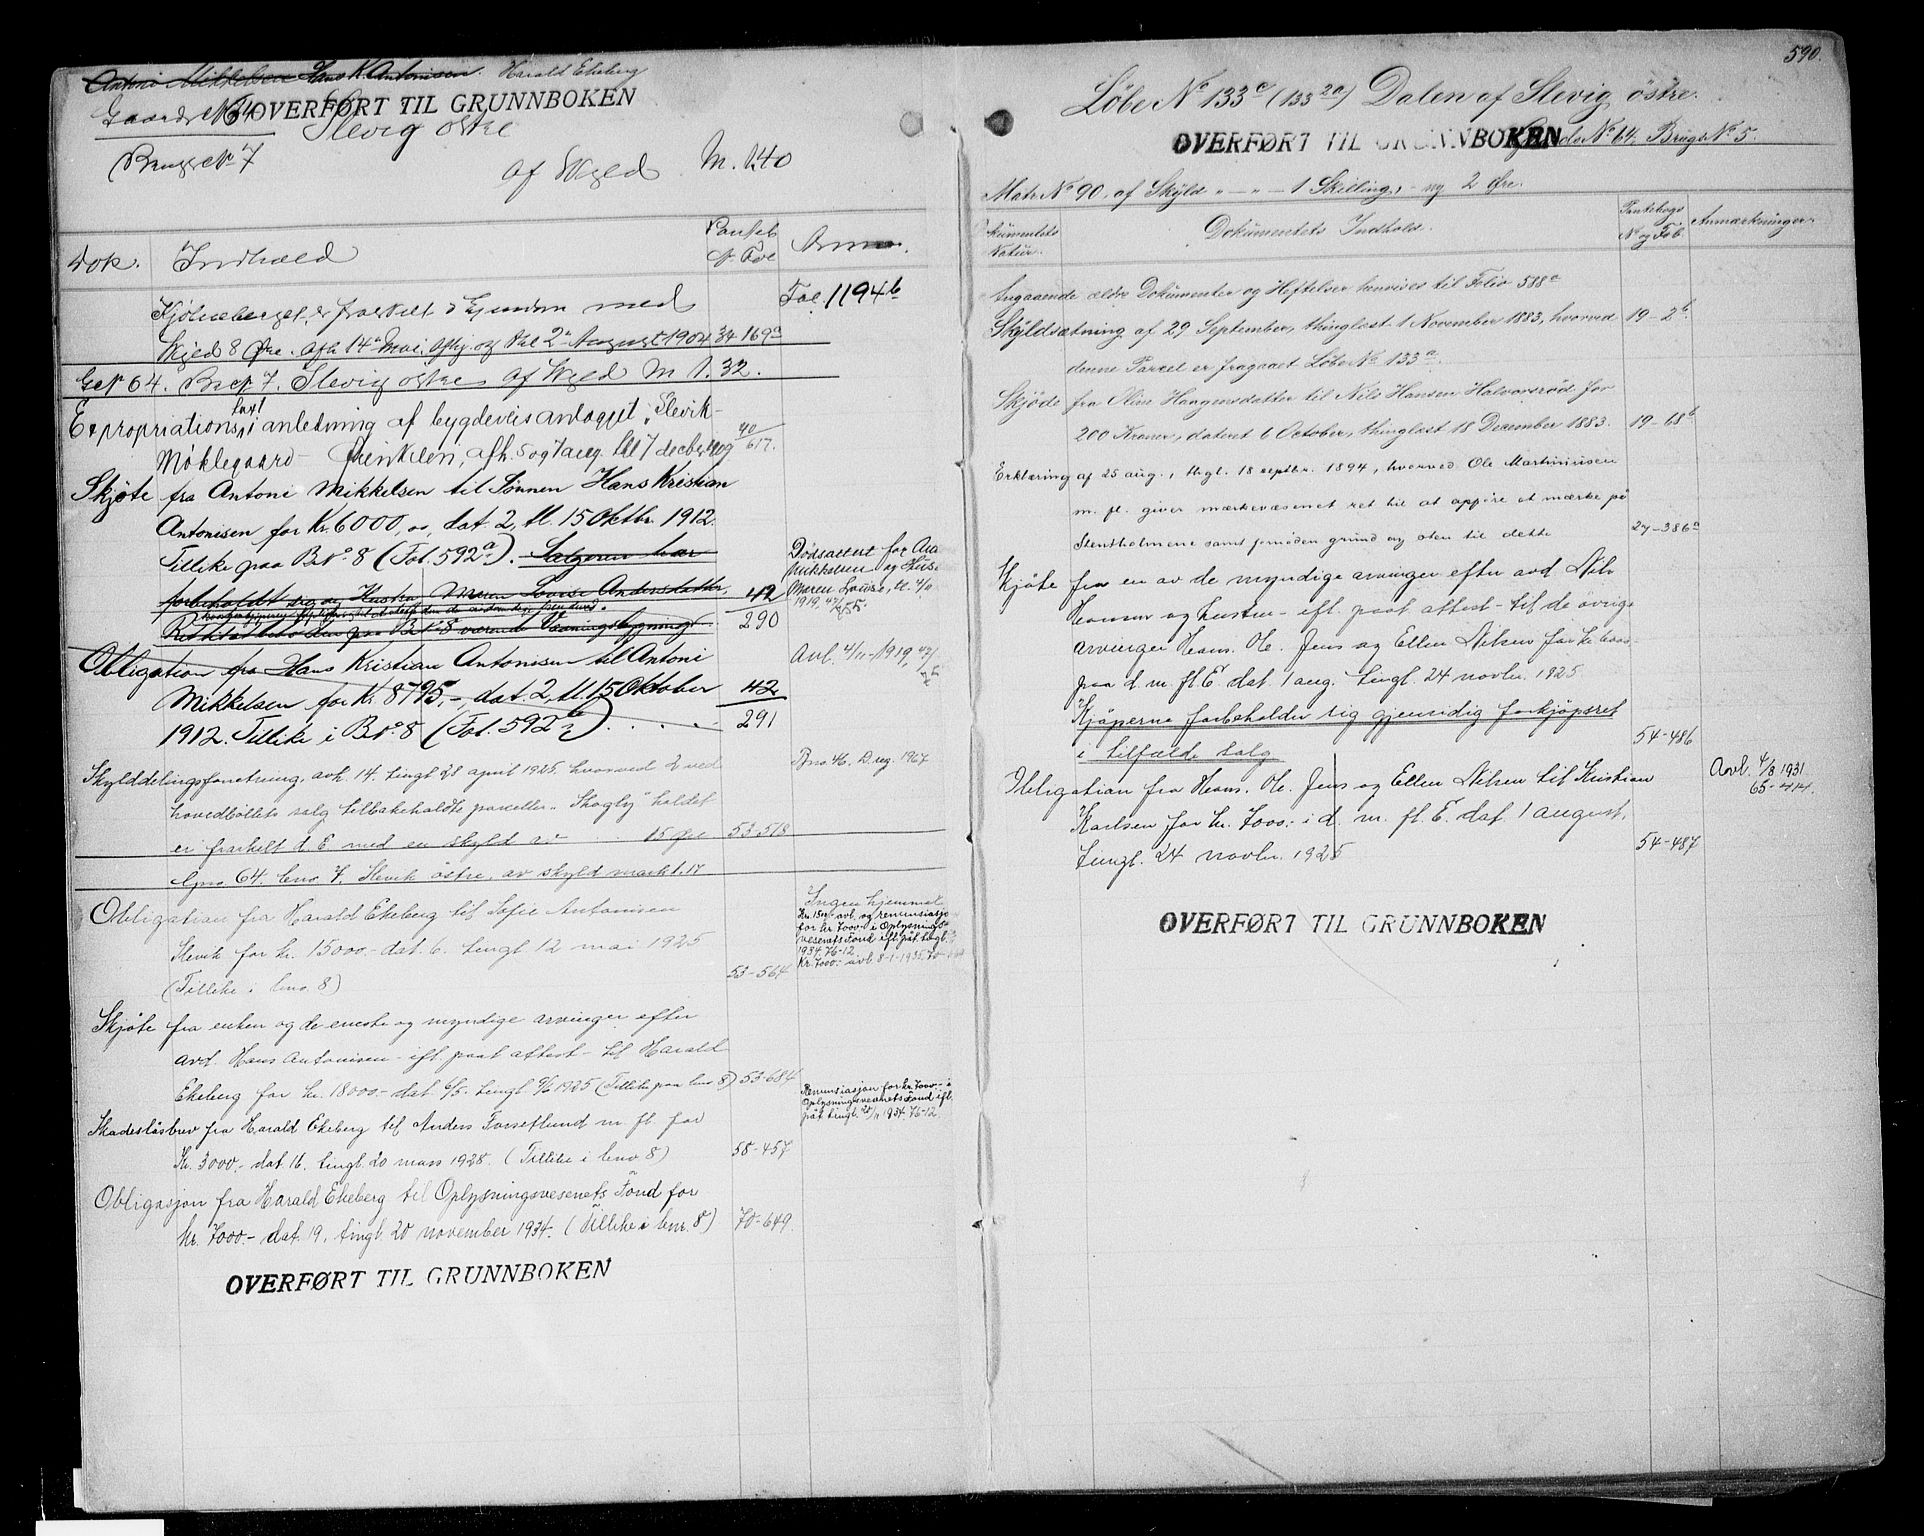 Antoni Mikkelsen Hans K. Antonisen. Harald Ekeberg
Gaards No 64 OVERFØRT TIL GRUNNBOKEN
Slevig østre
Brugs No 7
af Skyld M. 1.40
Dok. Indhold Panteb No Fol Anm.
Kjölneberget, er fraskilt d Eiendom med Fol. 1194b
Skyld 8 Øre. Afh 14de Mai, Afhj. og thl 2den August 1904 34 169a
G No 64. B No 7. Slevig østre af Skyld M 1.32.
Expropriationstaxt i anledning af bygdeveisanlægget Slevik-
Møklegaard- , afh. 5 og 7 aug. tl 7 decbr 1909 40/617.
Skjøte fra Antoni Mikkelsen til Sønnen Hans Kristian
Antonisen for Kr. 6000,00, dat. 2, tl. 15 Oktbr. 1912.
Tillike paa B No 8 (Fol. 592a). Sælgeren har
Dødsattest for Antoni Mikkelsen og Hustru
forbeholdt sig og Hustru Maren Lovise Andersdatter, 42/290
Maren Lovise, tl. 4/11 1919, 47/655.
paa B No 8 værende Vaaningsbygning
Obligation fra Hans Kristian Antonisen til Antoni Avl. 4/11-1919, 47/
Mikkelsen for Kr. 8795,-, dat. 2, tl. 15 Oktober 42/291
1912. Tillike i B No 8 (Fol. 592a) . . .
Skylddelingsforretning, avh. 14. tingl 28 april 1925. hvorved 2 ved Bno. 46. D. ug. 1967
hovedbölets salg tilbakeholdte parceller "Skogly" kaldet
er fraskilt d. E. med en skyld av ... 15 Øre 53-518
Gno. 64. bno. 7. Slevik östre, av skyld mark 1.17
Obligation fra Harald Ekeberg til Sofie Antonisen Ingen hjemmel
Slevik for kr. 15000.- dat. 6. tingl. 12 mai 1925
(Tillike i bno. 8) 53-564
Kr. 1500.- avl. og renunsiasjon
for kr 7000.- i Oplysnings-
vesenets Fond ifl. påt. tingl.
1934. 76-12
Kr. 7000.- avl. 8-1-1935. 70-
Skjöte fra enken og de eneste og myndige arvinger efter
avd. Hans Antonisen - ifl. paat attest - til Harald
Ekeberg for kr. 18000.- dat 6/5. tingl 9/6 1925 (Tillike paa bno 8) 53-684
Renunsiasjon for kr. 7000.- i
Oplysningsvesenets Fond ifl.
påt. tingl. 20/11 1934. 76-12.
Skadeslösbrev fra Harald Ekeberg til Anders Torseflund m. fl. for
Kr. 3000.- dat. 16. tingl. 20 mars 1928. (Tillike i bno 8) 58-457
Obligasjon fra Harald Ekeberg til Oplysningsvesenets Fond for
kr. 7000.- dat. 19, tingl. 20 november 1934. (Tillike i bnr. 8) 70-649.
OVERFØRT TIL GRUNNBOKEN
590.
Löbe No 133c (133 2a) Dalen af Slevig östre.
OVERFØRT TIL GRUNNBOKEN
Gaards No 64, Brugs No 5.
Matr No 90, af Skyld " - " - 1 Skilling, - ny 2 Øre.
Dokumentets Natur. Dokumentets Indhold. Pantebogs No og Fol. Anmærkninger.
Angaaende ældre Dokumenter og Heftelser henvises til Folio 588a
Skyldsætning af 29 September, thinglæst 1 November 1883, hvorved 19-2b.
denne Parcel er fragaaet Löbe No 133a.
Skjöde fra Oline Haagensdatter til Nils Hansen Halvorsröd for
200 Kroner, dateret 6 October, thinglæst 18 December 1883. 19-68b
Erklæring af 25 aug., thgl. 18 septbr. 1894, hvorved Ole Martiniusen
m. fl. giver mærkevæsenet ret til at oppføre et mærke på
Stentholmene samt fornøden grund og sten til dette 27-386a
Skjöte fra en av de myndige arvinger efter avd. Nils
Hansen og hustru - ifl. paat attest - til de övrige
arvinger Hans. Ole. Jens og Ellen Nilsen for kr. 6000.-
paa d. m. fl. E. dat. 1 aug. tingl. 24 novbr. 1925.
Kjöperne forbeholder sig gjensidig forkjöpsret
i tilfælde salg 54-486
Obligation fra Hans. Ole. Jens og Ellen Nilsen til Kristian Avl. 4/8 1931
65-414.
Karlsen for kr. 7000.- i d. m. fl. E. dat. 1 august.
tingl. 24 novbr. 1925 54-487
OVERFØRT TIL GRUNNBOKEN